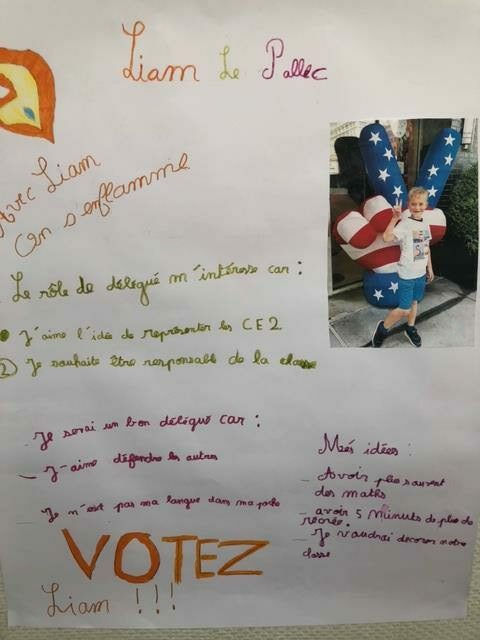 Liam Le Pallec
Avec Liam
On s'enflamme
Le rôle de délégué m'intéresse car :
J'aime l'idée de représenter les CE2
2) Je souhaite être responsable de la classe
Je serai un bon délégué car :
- J-aime défendre les autres
- Je n'est pas ma langue dans ma poche
Més idées :
- Avoir plus souvent
des maths
- avoir 5 minuts de plus de
récrée.
- Je vaudrai décorer notre
classe
VOTEZ
Liam !!!